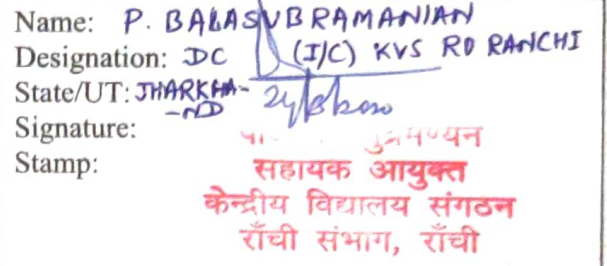 Name: P. BALASUBRAMANIAN
Designation: DC (I/C) KVS RO RANCHI
State/UT: JHARKHA-
-ND
Signature:
Stamp:
सहायक आयुक्त
केन्द्रीय विद्यालय संगठन
राँची संभाग, राँची